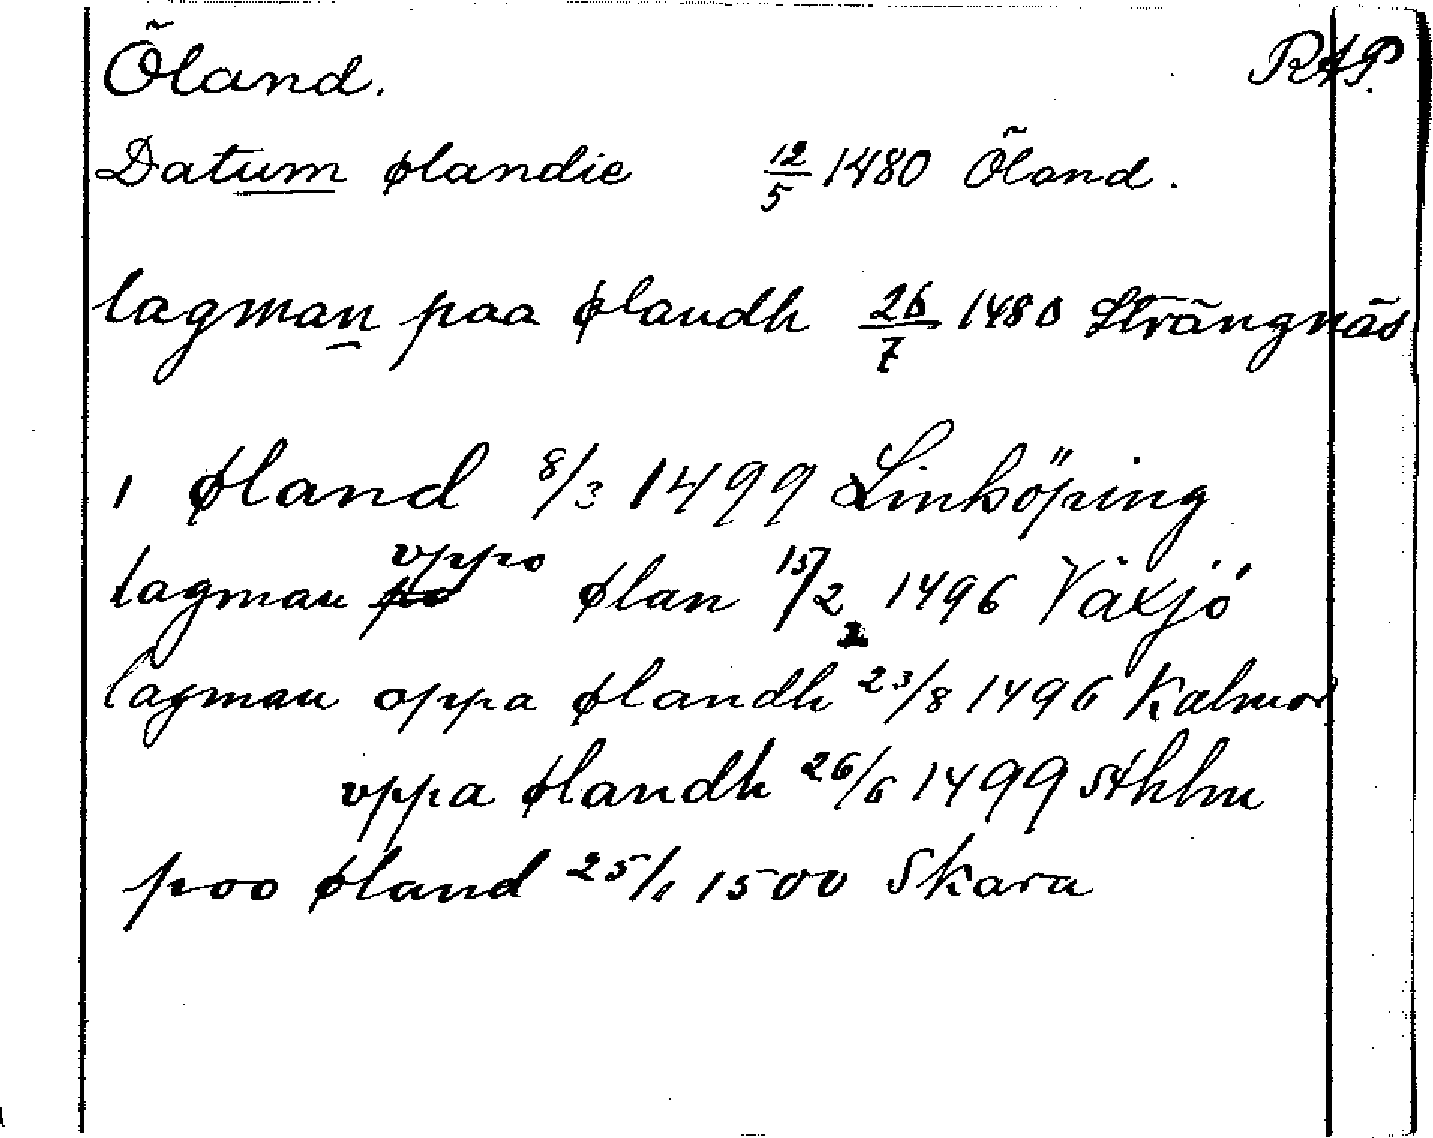 Öland. RAP.
Datum ølandie 12/5 1480 Öland.
lagman paa ølandh 26/7 1480 Strängnäs
i øland 8/3 1499 Linköping
lagman uppo ølan 15/2 1496 Växjö
lagman oppa ølandh 23/8 1496 Kalmar
vppa ølandh 26/6 1499 Sthlm
poo øland 25/1 1500 Skara